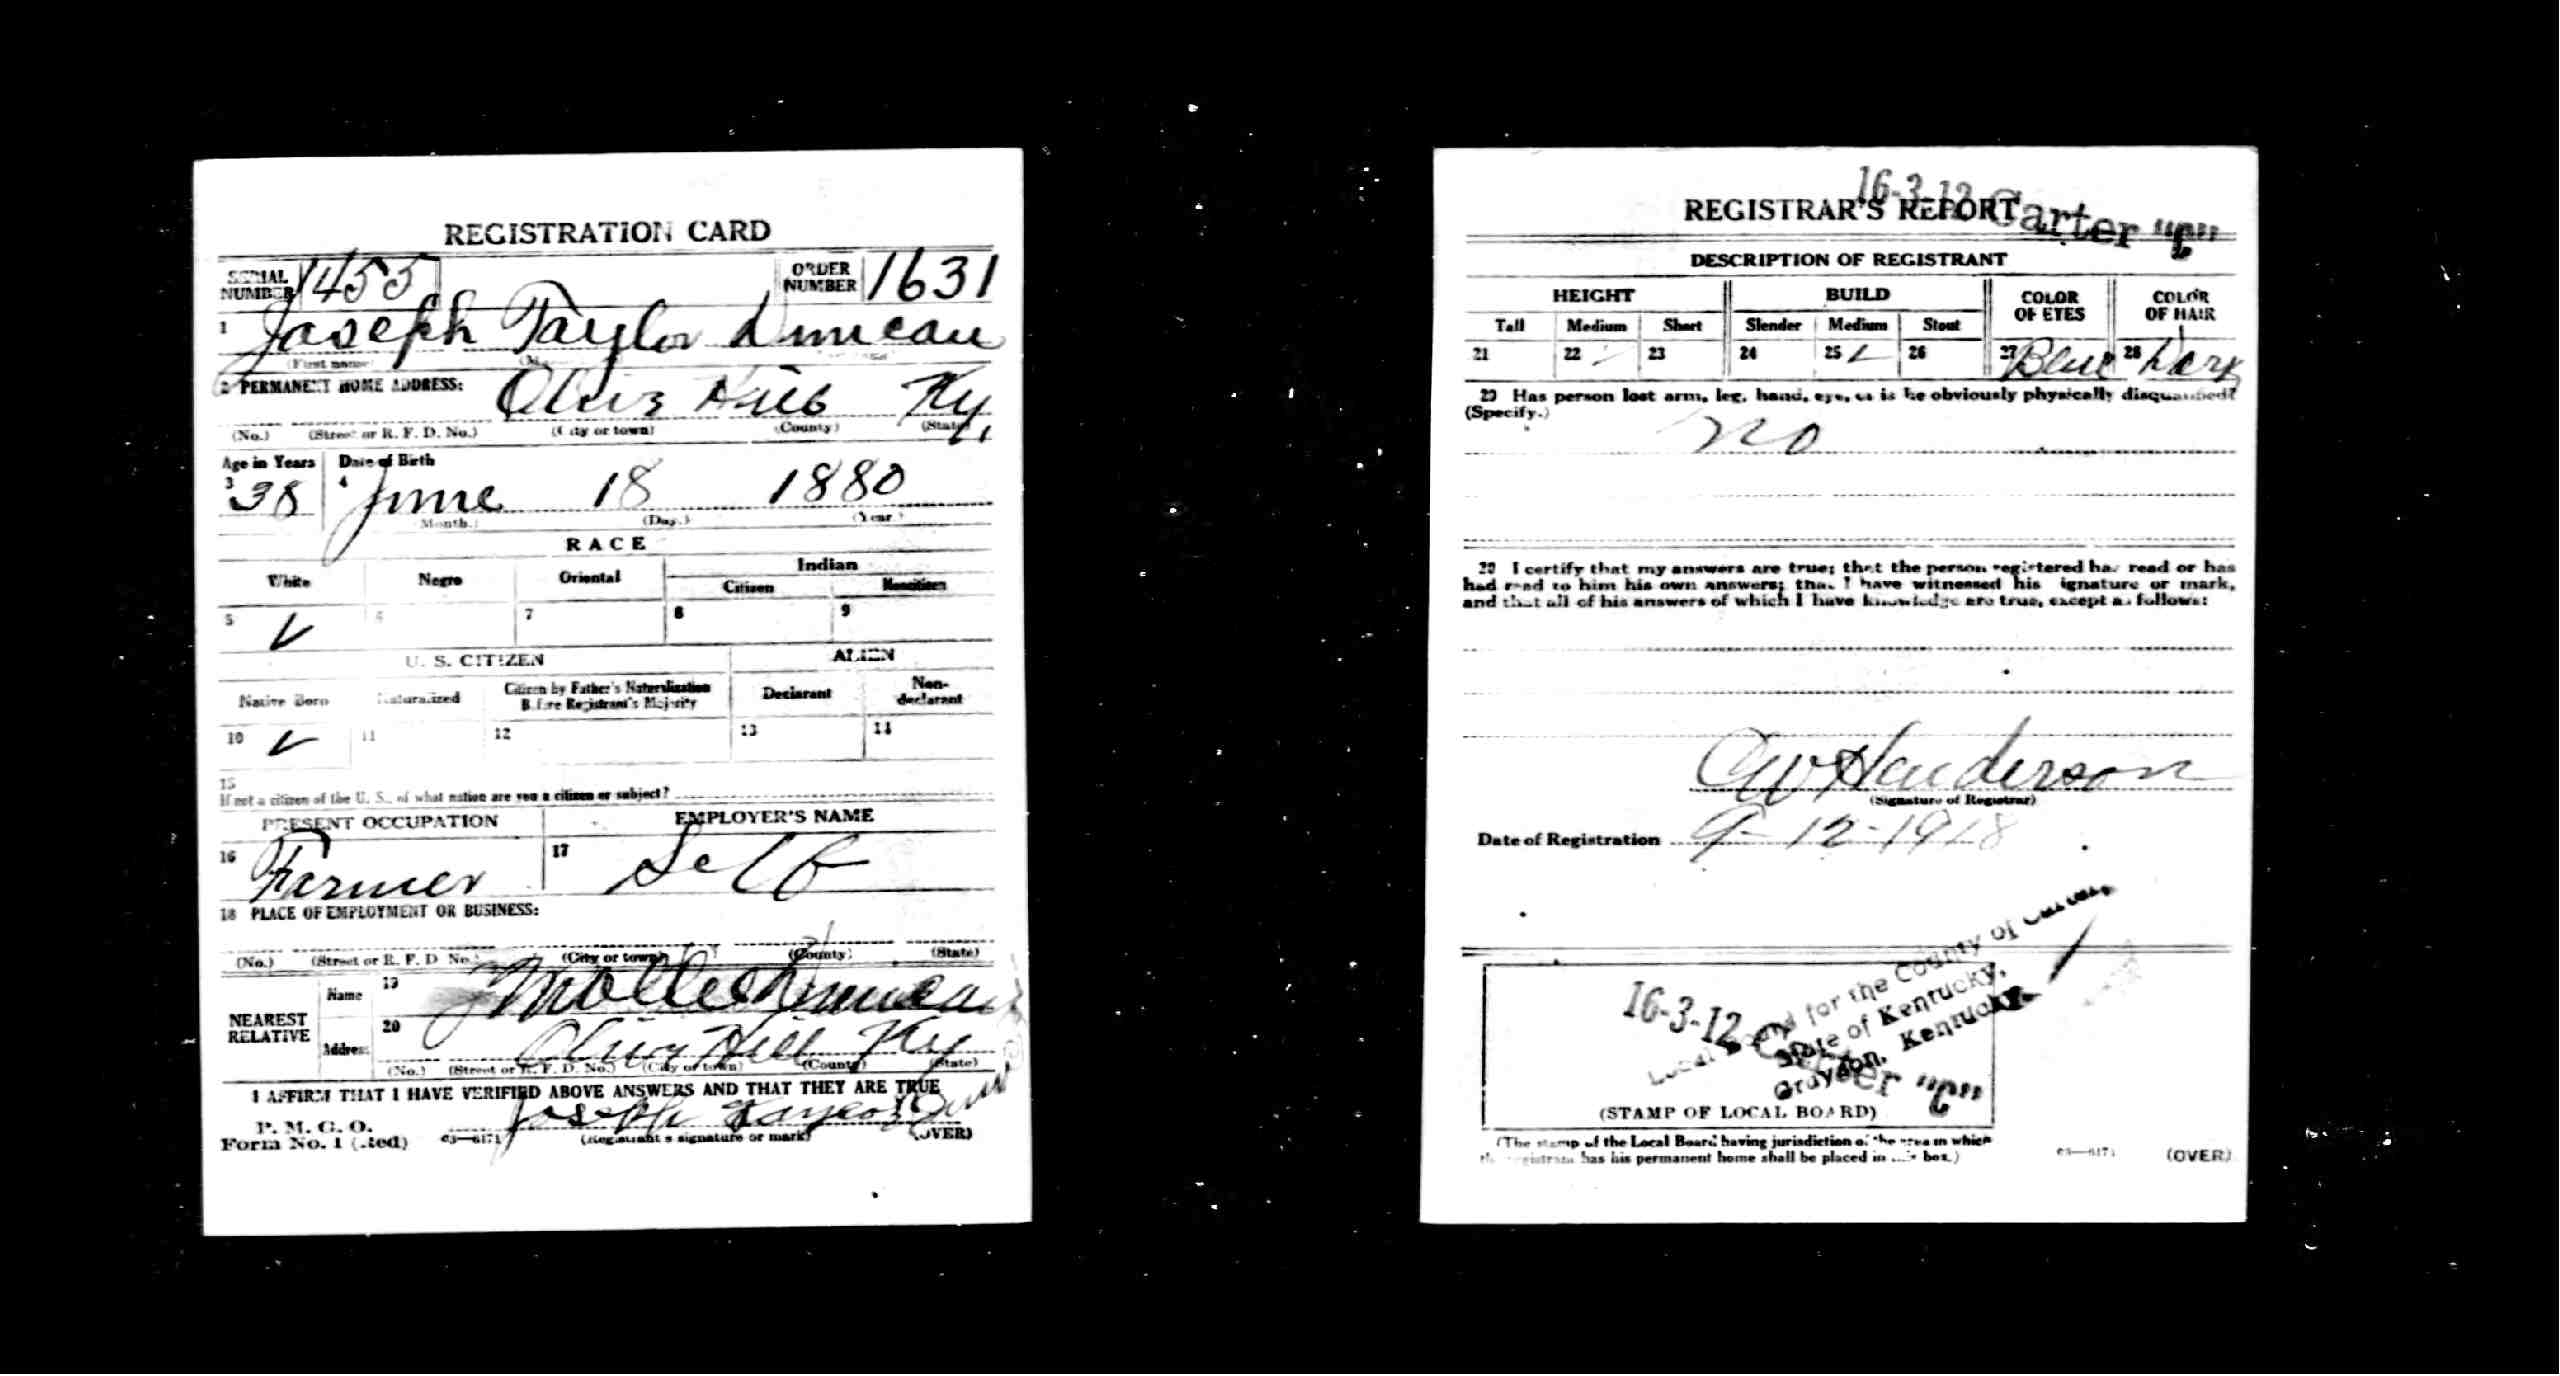 REGISTRATION CARD
SERIAL NUMBER 1455 ORDER NUMBER 1631
1 Joseph Taylor Duncan
(First name)
2 PERMANENT HOME ADDRESS: Olive Hill Ky.
(No.) (Street or R. F. D. No.) (City or town) (County) (State)
Age in Years Date of Birth
3 38 4 June 18 1880
(Month.) (Day.) (Year.)
RACE
White Negro Oriental Indian
Citizen Noncitizen
5 ✓ 6 7 8 9
U. S. CITIZEN ALIEN
Native Born Naturalized Citizen by Father's Naturalization Before Registrant's Majority Declarant Non-declarant
10 ✓ 11 12 13 14
15
If not a citizen of the U. S., of what nation are you a citizen or subject?
PRESENT OCCUPATION EMPLOYER'S NAME
16 Farmer 17 Self
18 PLACE OF EMPLOYMENT OR BUSINESS:
(No.) (Street or R. F. D. No.) (City or town) (County) (State)
NEAREST RELATIVE
Name 19 Mollie Duncan
Address 20 Olive Hill Ky
(No.) (Street or R. F. D. No.) (City or town) (County) (State)
I AFFIRM THAT I HAVE VERIFIED ABOVE ANSWERS AND THAT THEY ARE TRUE
P. M. G. O.
Form No. 1 (Red) 03—6171 Joseph Taylor Dun
(Registrant's signature or mark) (OVER)
16-3-12 Carter "C"
REGISTRAR'S REPORT
DESCRIPTION OF REGISTRANT
HEIGHT BUILD COLOR OF EYES COLOR OF HAIR
Tall Medium Short Slender Medium Stout
21 22 ✓ 23 24 25 ✓ 26 27 Blue 28 Dark
29 Has person lost arm, leg, hand, eye, or is he obviously physically disqualified?
(Specify.)
No
30 I certify that my answers are true; that the person registered has read or has
had read to him his own answers; that I have witnessed his signature or mark,
and that all of his answers of which I have knowledge are true, except as follows:
CW Henderson
(Signature of Registrar)
Date of Registration 9-12-1918
Local Board for the County of Carter,
State of Kentucky,
Grayson, Kentucky
16-3-12 Carter "C"
(STAMP OF LOCAL BOARD)
(The stamp of the Local Board having jurisdiction of the area in which
the registrant has his permanent home shall be placed in this box.)
03—6171 (OVER)